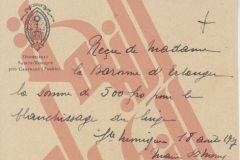 Reçu de madame
la Baronne d'Erlanger
la somme de 500 frs pour le
blanchissage du linge
Ste Monique 18 août 1937